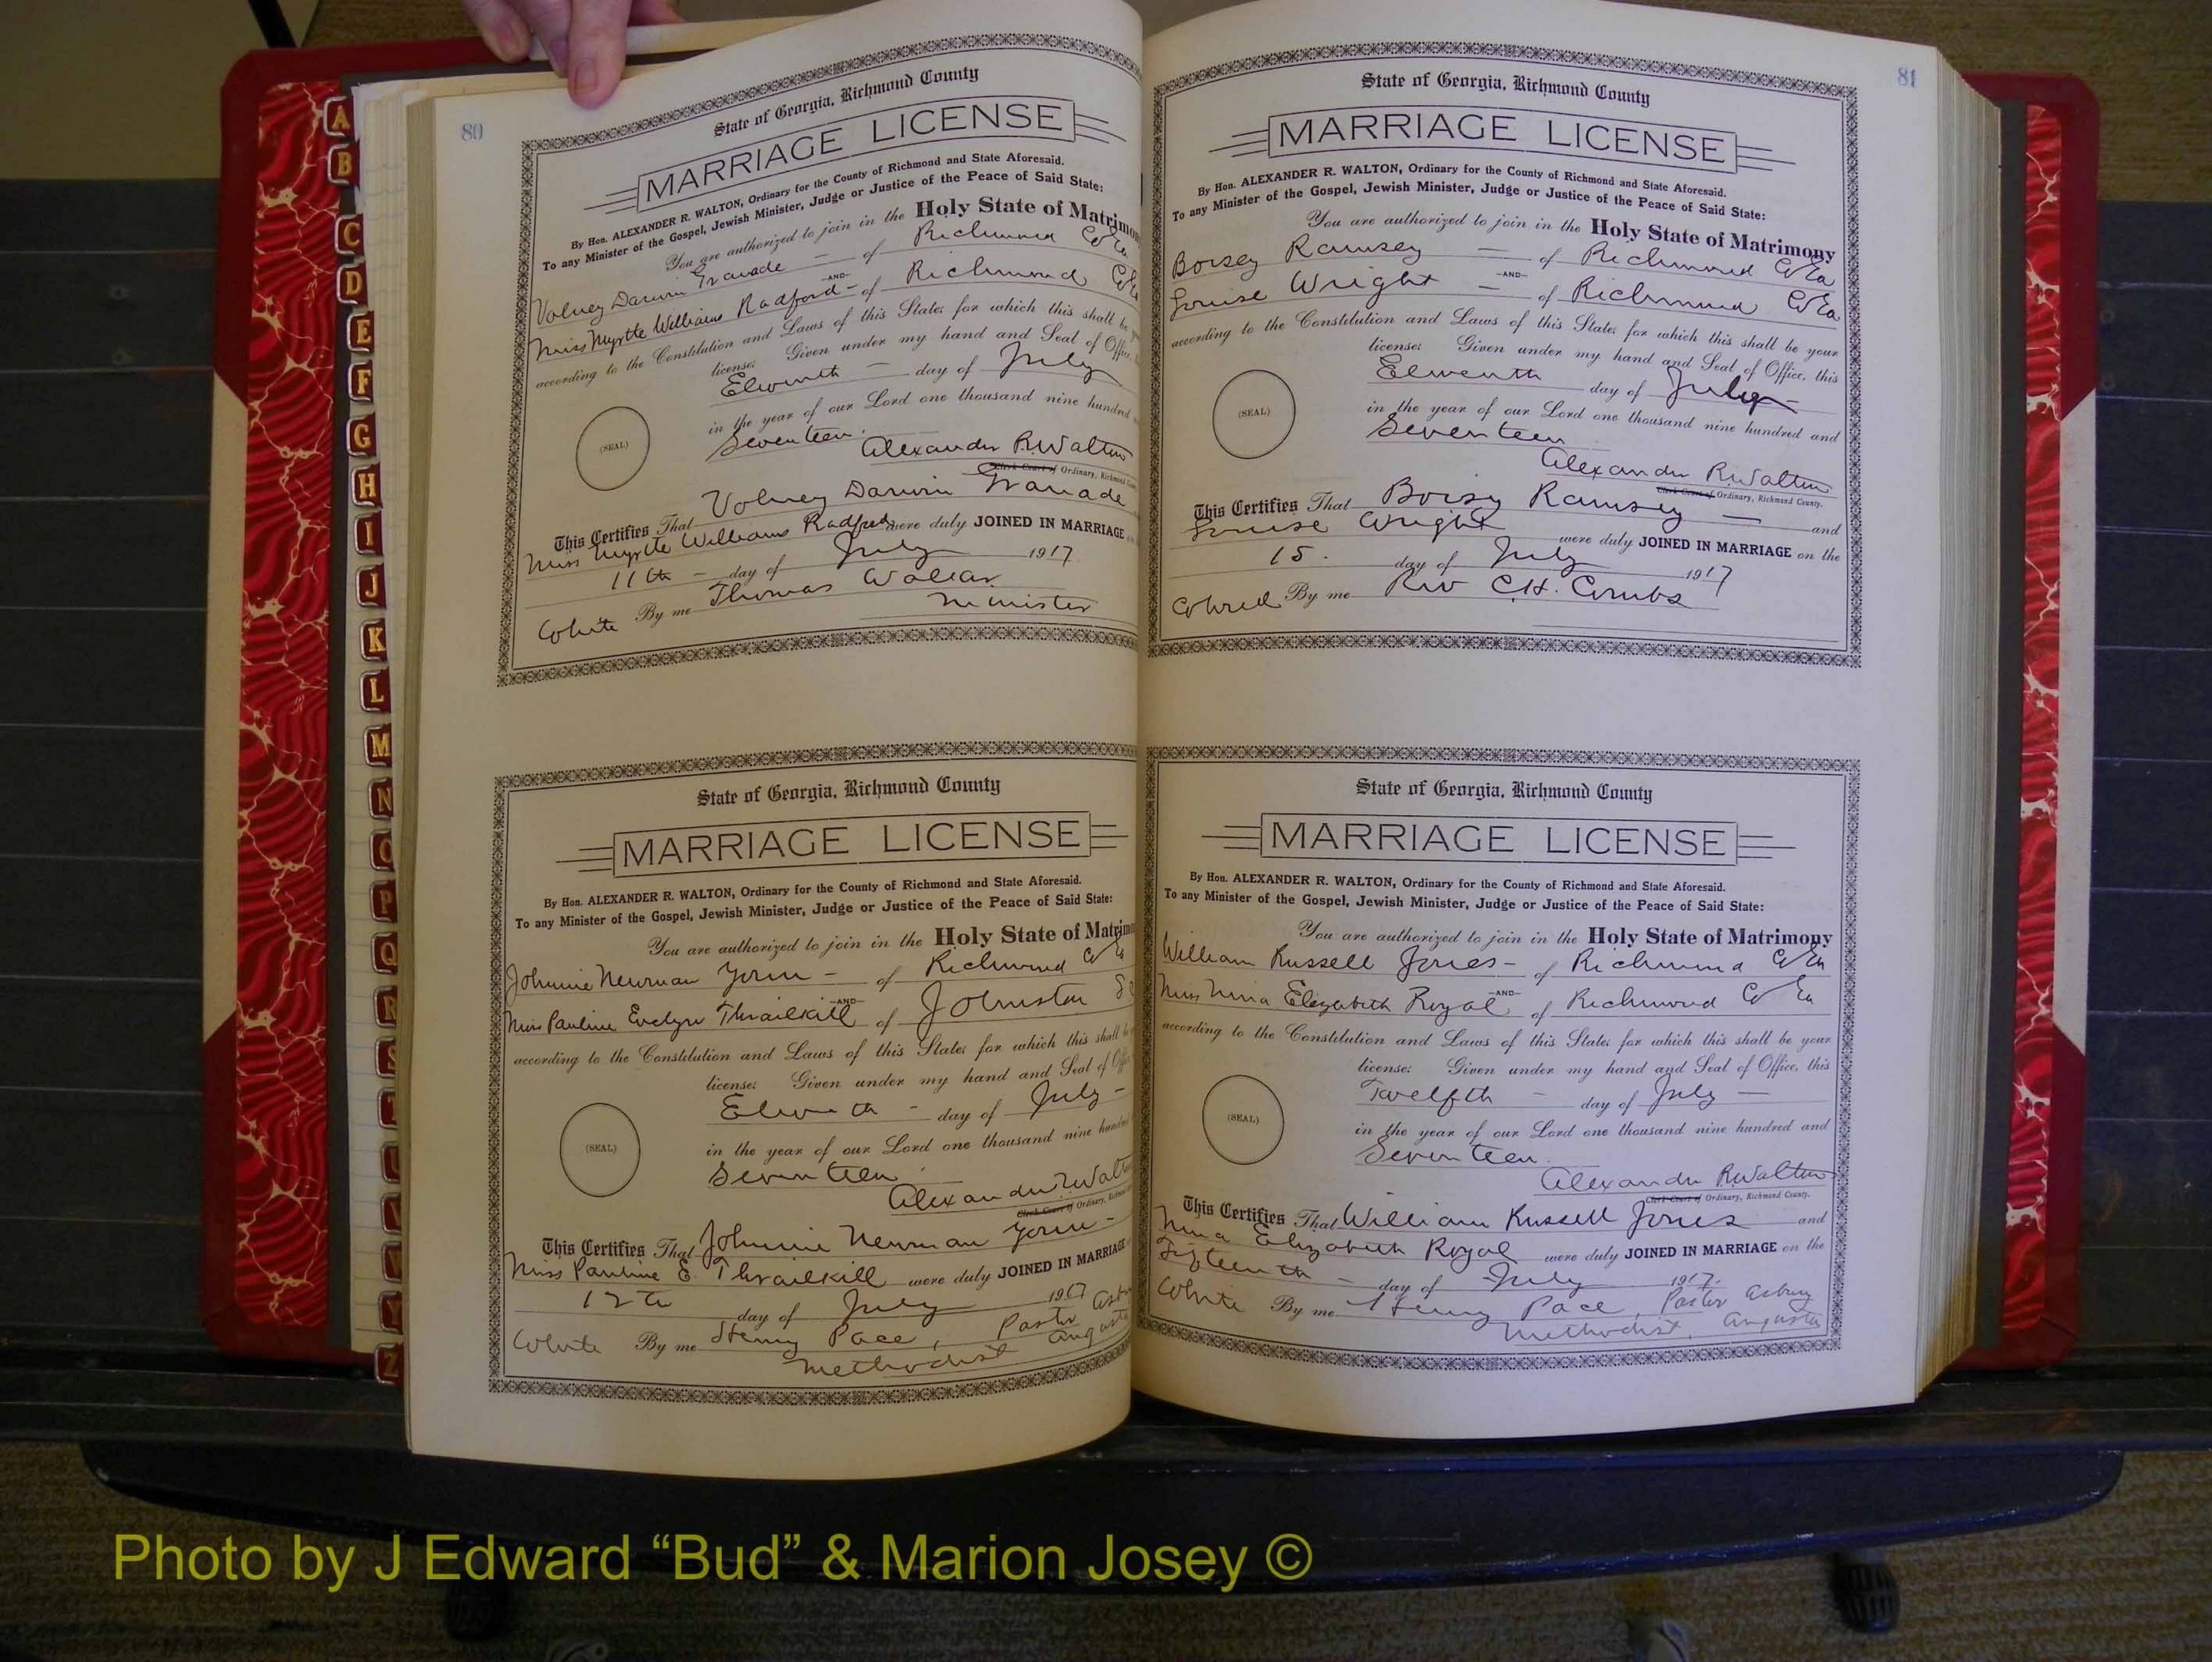 A
B
C
D
E
F
G
H
I
J
K
L
M
N
O
P
Q
R
S
T
U
V
W
Y
Z
80
State of Georgia, Richmond County
MARRIAGE LICENSE
By Hon. ALEXANDER R. WALTON, Ordinary for the County of Richmond and State Aforesaid.
To any Minister of the Gospel, Jewish Minister, Judge or Justice of the Peace of Said State:
You are authorized to join in the Holy State of Matrimon
Volney Darwin Granade - of Richmond Co Ga
-AND-
Miss Myrtle Williams Radford - of Richmond Co
according to the Constitution and Laws of this State; for which this shall be
license: Given under my hand and Seal of Office,
Eleventh - day of July
in the year of our Lord one thousand nine hundred
Seventeen.
(SEAL)
Alexander R Walton
Clerk Court of Ordinary, Richmond County
This Certifies That Volney Darwin Granade
Miss Myrtle Williams Radford were duly JOINED IN MARRIAGE
11th - day of July 1917
White By me Thomas Walker
Minister
State of Georgia, Richmond County
MARRIAGE LICENSE
By Hon. ALEXANDER R. WALTON, Ordinary for the County of Richmond and State Aforesaid.
To any Minister of the Gospel, Jewish Minister, Judge or Justice of the Peace of Said State:
You are authorized to join in the Holy State of Matrim
Johnnie Newman - of Richmond Co
-AND-
Miss Pauline Evelyn Thrailkill of Johnston SC
according to the Constitution and Laws of this State; for which this shall be
license: Given under my hand and Seal of Offi
Eleventh - day of July -
in the year of our Lord one thousand nine hundred
Seventeen
(SEAL)
Alexander R Walt
Clerk Court of Ordinary, Richmond
This Certifies That Johnnie Newman
Miss Pauline E. Thrailkill were duly JOINED IN MARRIAGE
12th day of July 1917
White By me Henry Pace, Pastor Asbury
Methodist Augusta
81
State of Georgia, Richmond County
MARRIAGE LICENSE
By Hon. ALEXANDER R. WALTON, Ordinary for the County of Richmond and State Aforesaid.
To any Minister of the Gospel, Jewish Minister, Judge or Justice of the Peace of Said State:
You are authorized to join in the Holy State of Matrimony
Boisey Ramsey - of Richmond Co Ga
-AND-
Louise Wright - of Richmond Co Ga
according to the Constitution and Laws of this State; for which this shall be your
license: Given under my hand and Seal of Office, this
Eleventh day of July -
in the year of our Lord one thousand nine hundred and
Seventeen
(SEAL)
Alexander R Walton
Clerk Court of Ordinary, Richmond County.
This Certifies That Boisy Ramsey - and
Louise Wright were duly JOINED IN MARRIAGE on the
15. day of July 1917
Colored By me Rev C.H. Combs
State of Georgia, Richmond County
MARRIAGE LICENSE
By Hon. ALEXANDER R. WALTON, Ordinary for the County of Richmond and State Aforesaid.
To any Minister of the Gospel, Jewish Minister, Judge or Justice of the Peace of Said State:
You are authorized to join in the Holy State of Matrimony
William Russell Jones - of Richmond Co Ga
-AND-
Miss Nina Elizabeth Royal of Richmond Co Ga
according to the Constitution and Laws of this State; for which this shall be your
license: Given under my hand and Seal of Office, this
Twelfth - day of July -
in the year of our Lord one thousand nine hundred and
Seventeen
(SEAL)
Alexander R Walton
Clerk Court of Ordinary, Richmond County.
This Certifies That William Russell Jones and
Nina Elizabeth Royal were duly JOINED IN MARRIAGE on the
Fifteenth - day of July 1917.
White By me Henry Pace, Pastor Asbury
Methodist, Augusta
Photo by J Edward “Bud” & Marion Josey ©